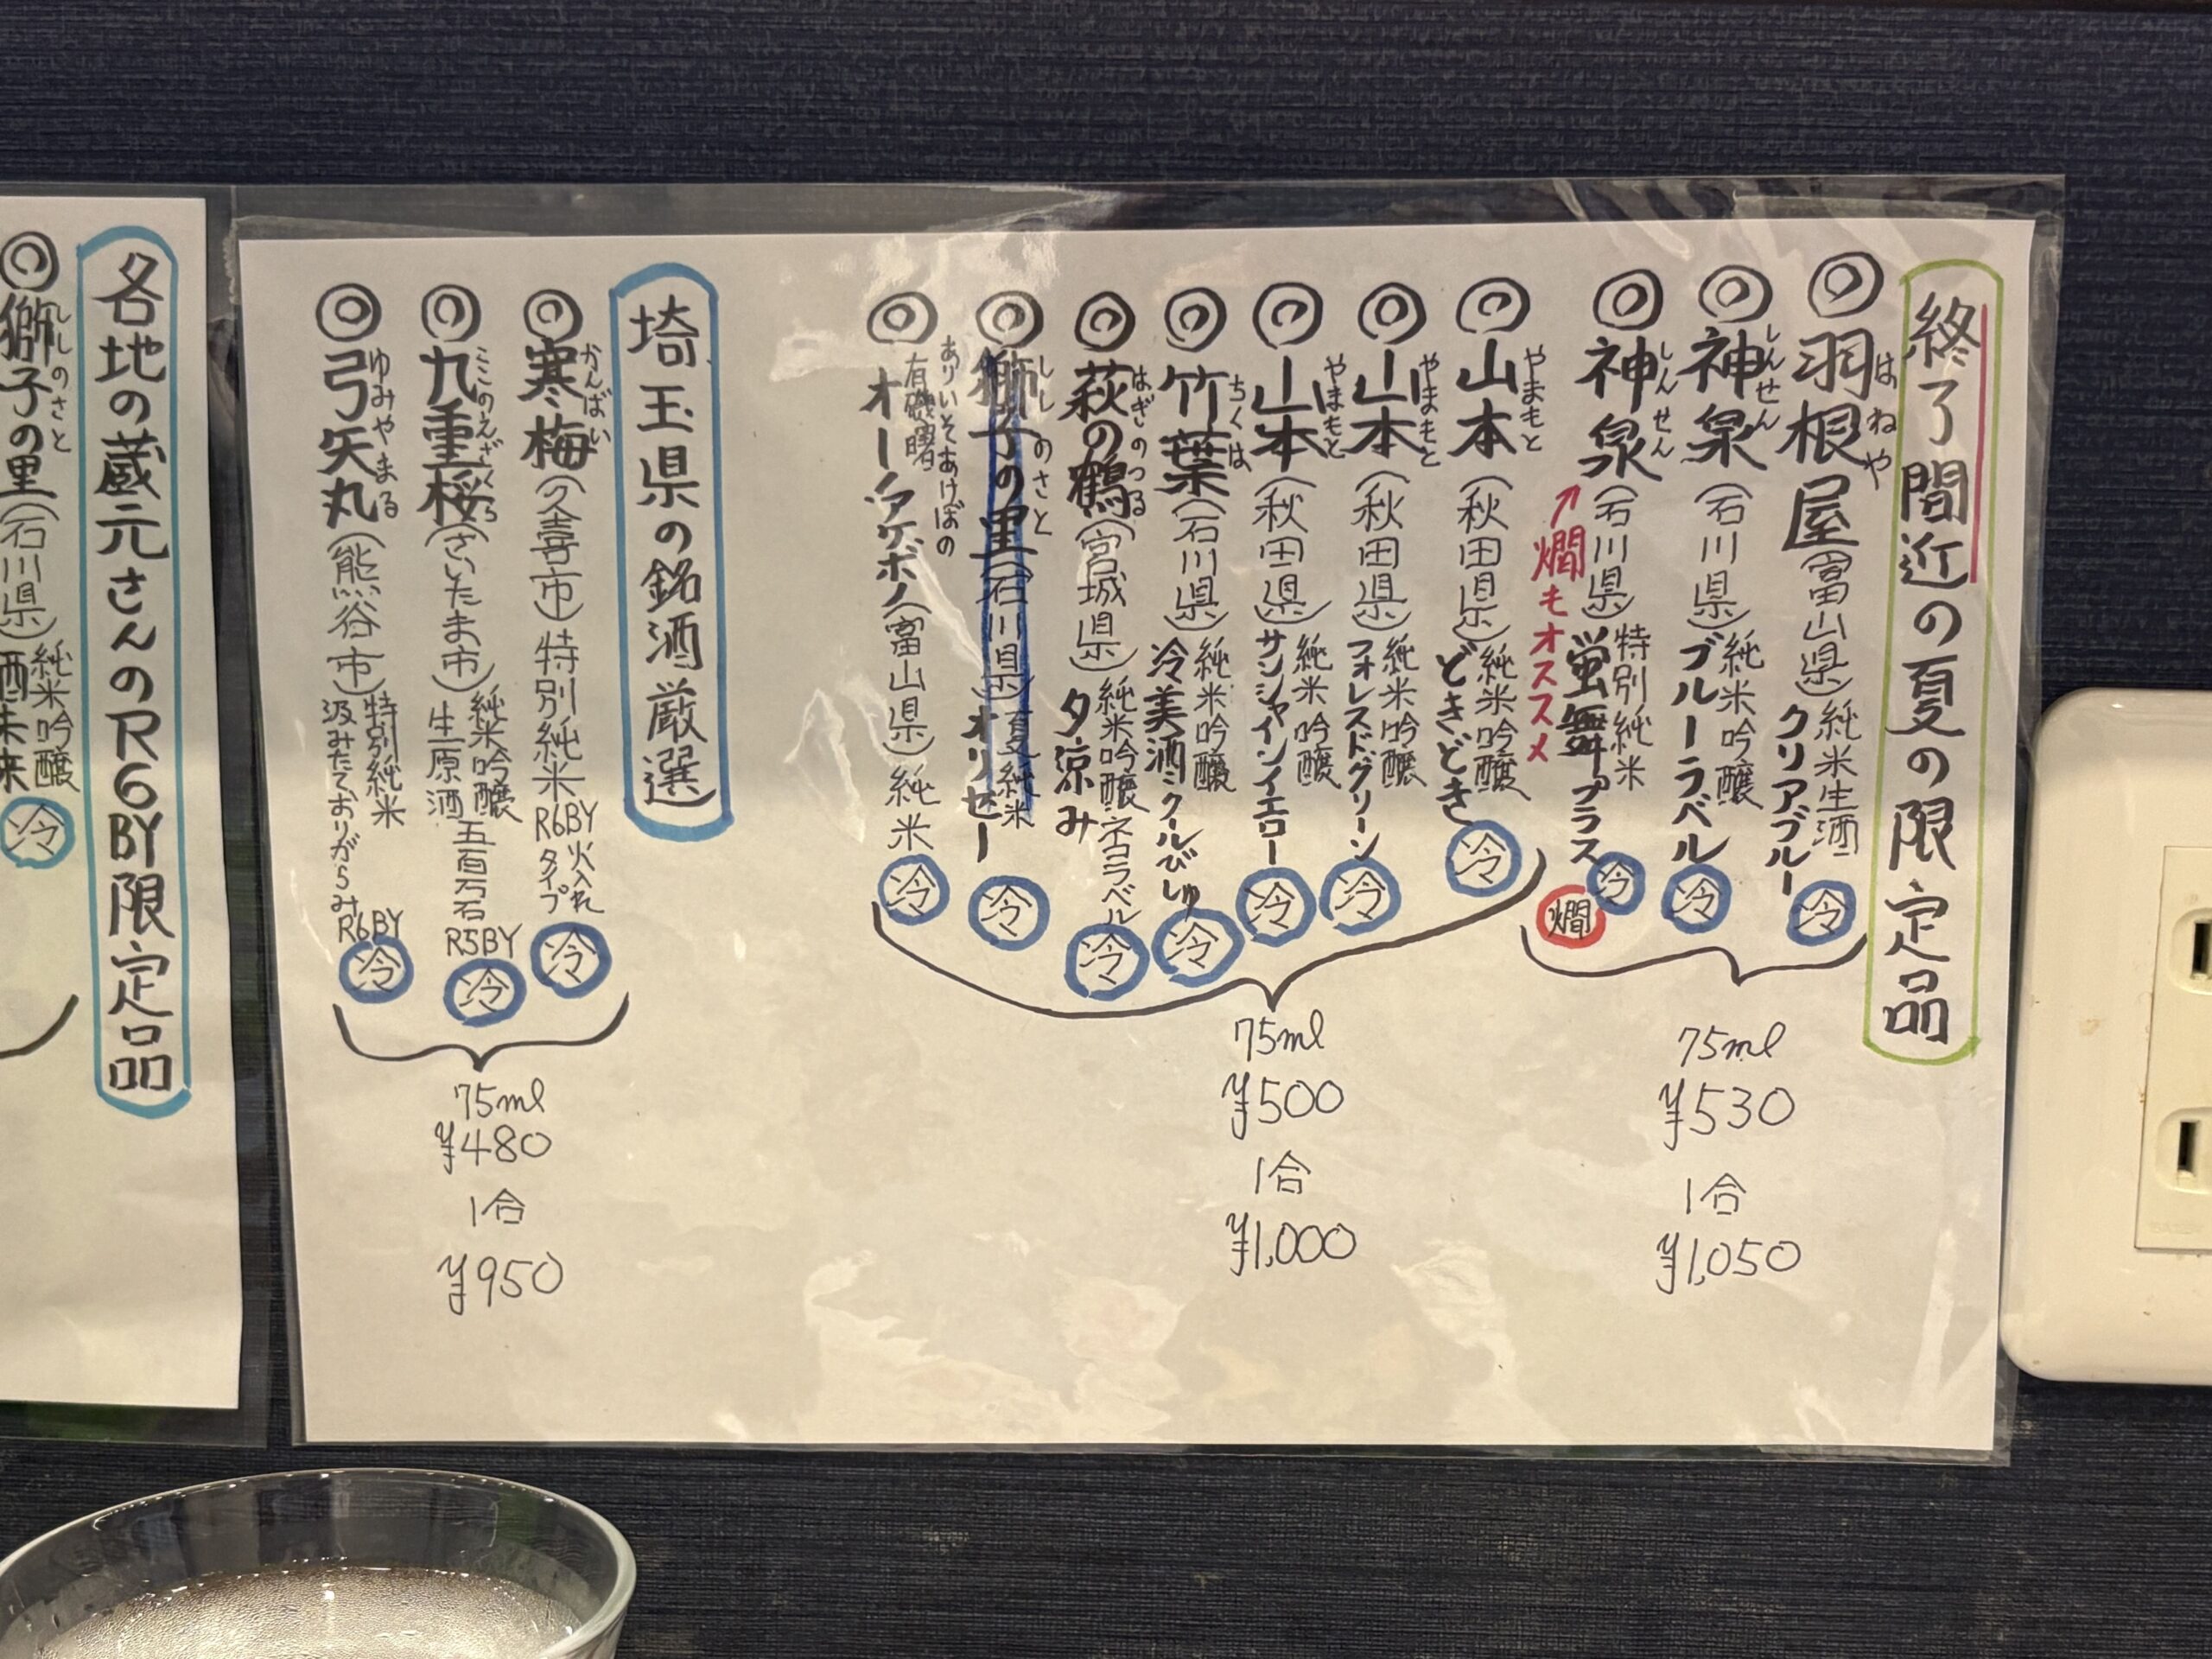 終了間近の夏の限定品
◎羽根屋(富山県)純米生酒クリアブルー 冷
はねや
◎神泉(石川県)純米吟醸ブルーラベル 冷
しんせん
◎神泉(石川県)特別純米蛍舞プラス 冷 燗
しんせん
↑燗もオススメ
75ml
¥530
1合
¥1,050
◎山本(秋田県)純米吟醸どきどき 冷
やまもと
◎山本(秋田県)純米吟醸フォレストグリーン 冷
やまもと
◎山本(秋田県)純米吟醸サンシャインイエロー 冷
やまもと
◎竹葉(石川県)純米吟醸冷美酒ミクールびしゅ 冷
ちくは
◎萩の鶴(宮城県)純米吟醸ネコラベル夕涼み 冷
はぎのつる
◎獅子の里(石川県)夏純米オリゼー 冷
ししのさと
◎有磯曙オーシャンアケボノ(富山県)純米 冷
ありいそあけぼの
75ml
¥500
1合
¥1,000
埼玉県の銘酒厳選
◎寒梅(久喜市)特別純米R6BY火入れタイプ 冷
かんばい
◎九重桜(さいたま市)純米吟醸生原酒五百万石R5BY 冷
ここのえざくら
◎弓矢丸(熊谷市)特別純米汲みたておりがらみR6BY 冷
ゆみやまる
75ml
¥480
1合
¥950
各地の蔵元さんのR6BY限定品
◎獅子の里(石川県)純米吟醸 冷
ししのさと